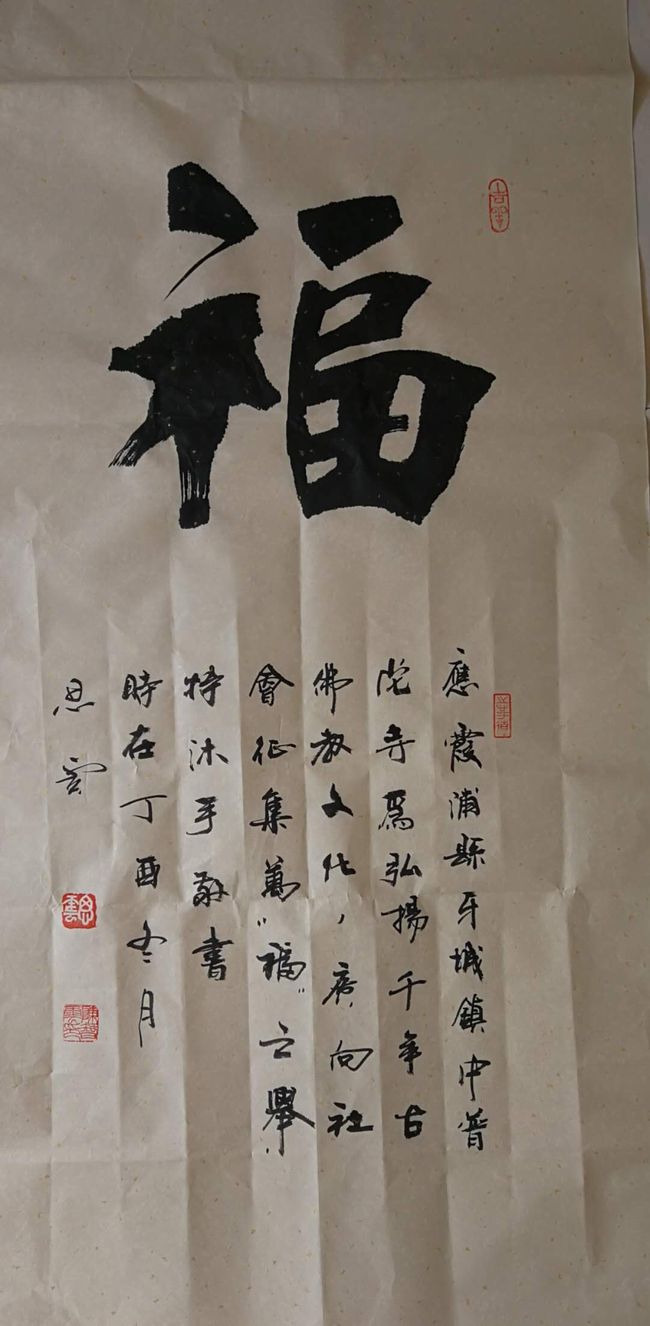 福
應霞浦縣牙城鎮中普
陀寺爲弘揚千年古
佛教文化，廣向社
會征集萬“福”之舉，
特沐手敬書
時在丁酉冬月
思雲
思雲